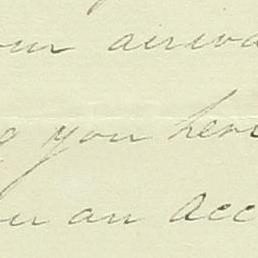 our arriva
g you here
ou an Acc